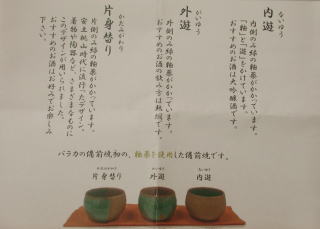 ないゆう
内遊
内側のみ緑の釉薬がかかっています。
「釉」と「遊」をかけています。
おすすめのお酒は大吟醸酒です。
がいゆう
外遊
外側のみ緑の釉薬がかかっています。
おすすめのお酒の飲み方は熱燗です。
かたみがわり
片身替り
片側のみ緑の釉薬がかかっています。
安土桃山時代に流行ったデザイン。
着物や陶器など、さまざまなものに
このデザインが用いられました。
おすすめのお酒はお好みでお楽しみ
下さい。
バラカの備前焼初の、釉薬を使用した備前焼です。
かたみがわり
片身替り
がいゆう
外遊
ないゆう
内遊